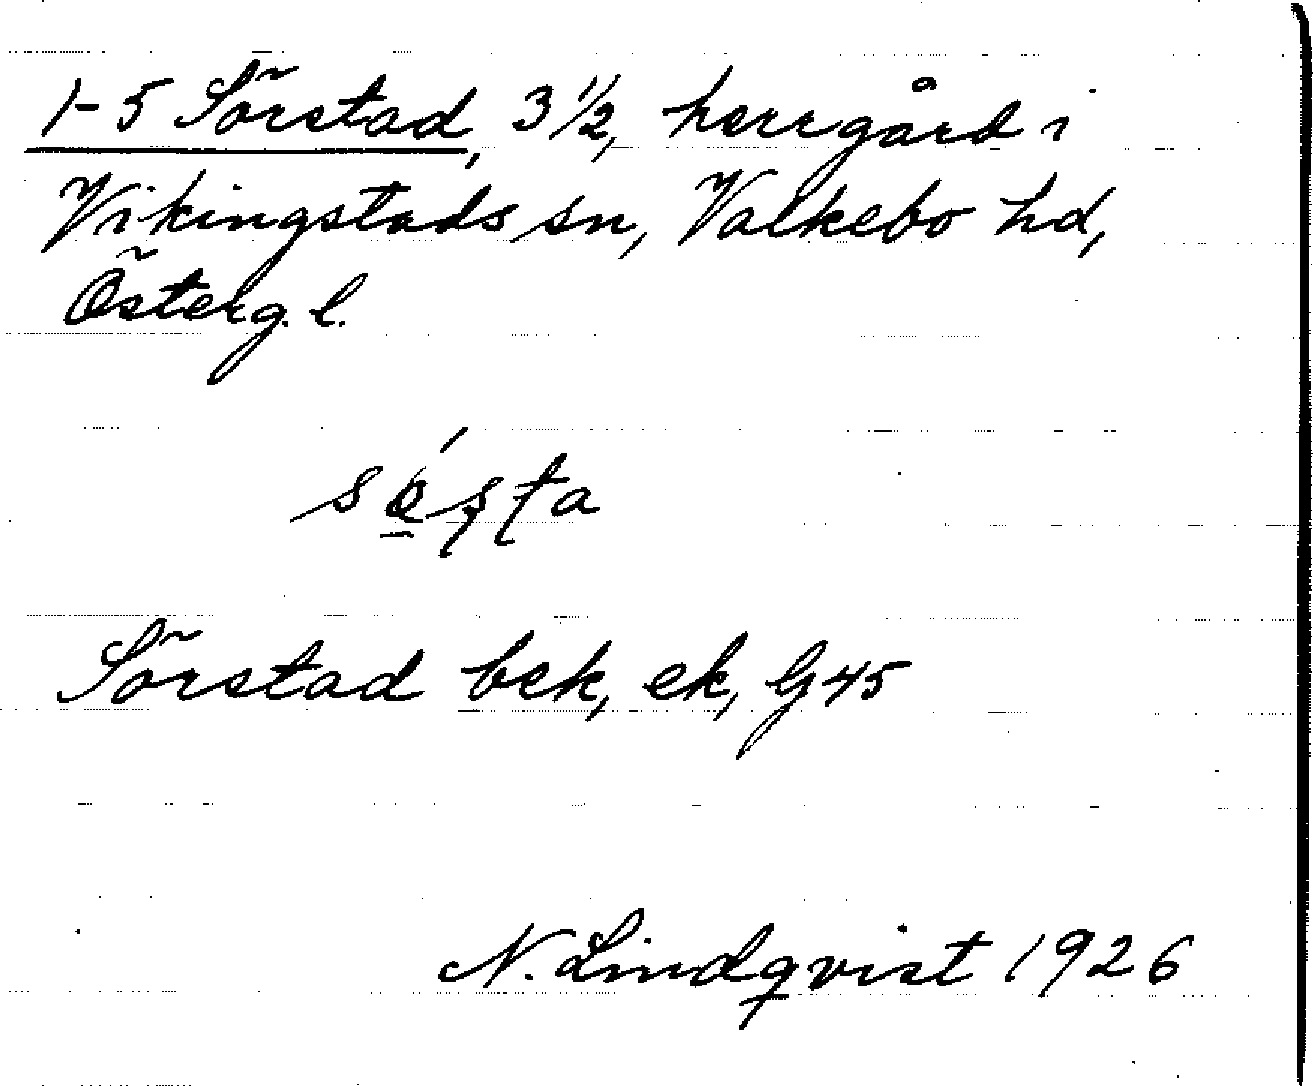 1-5 Sörstad, 3 1/2, herrgård i
Vikingstads sn, Valkebo hd,
Österg. l.
Sörstad bek, ek, G 45
N. Lindqvist 1926